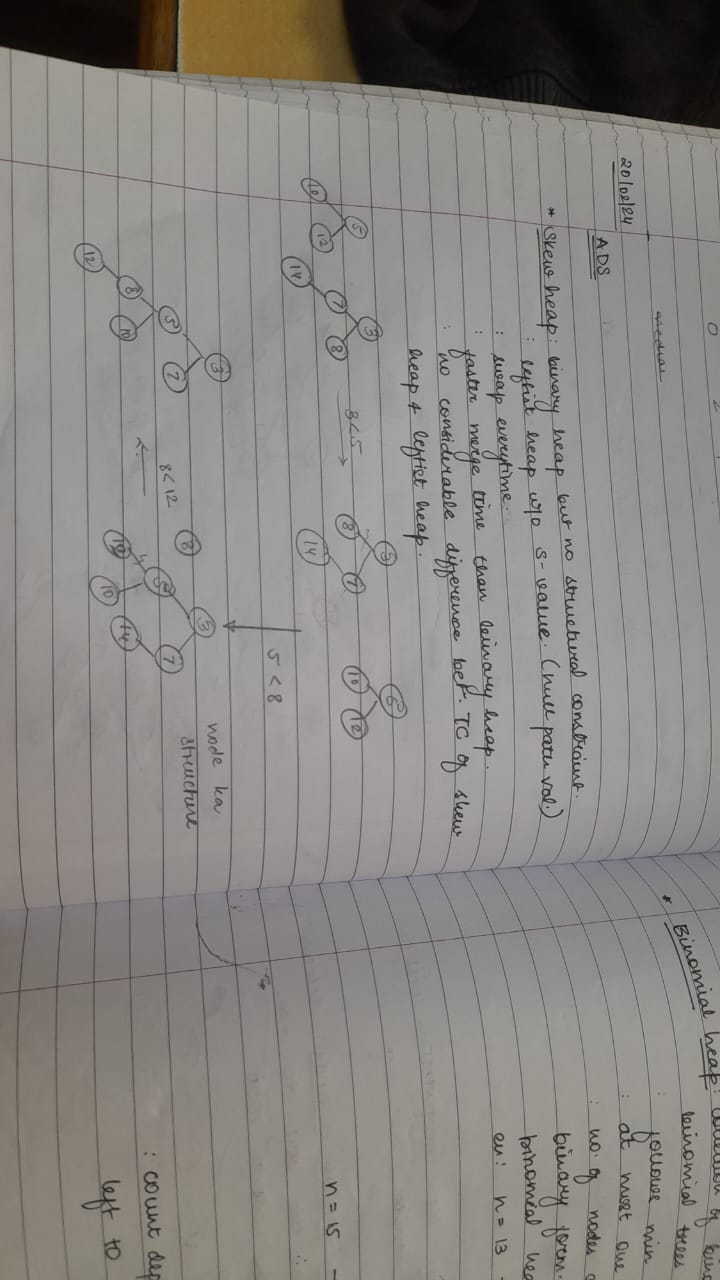 median
20/02/24
ADS
* Skew heap: binary heap but no structural constraint.
: leftist heap w/o s-value. (null path val.)
: swap everytime.
: faster merge time than binary heap.
: no considerable difference bet. TC of skew
heap & leftist heap.
5
10 12
3
7 8
14
3<5
3
8 7
14
5
10 12
5<8
3
5 7
10
14
8
8<12
3
5 7
8 10
12
node ka
structure
* Binomial heap:
binomial trees
follows min
: at most one
: no. of nodes
binary form
binomial
ex: n = 13
n = 15
: count
left to